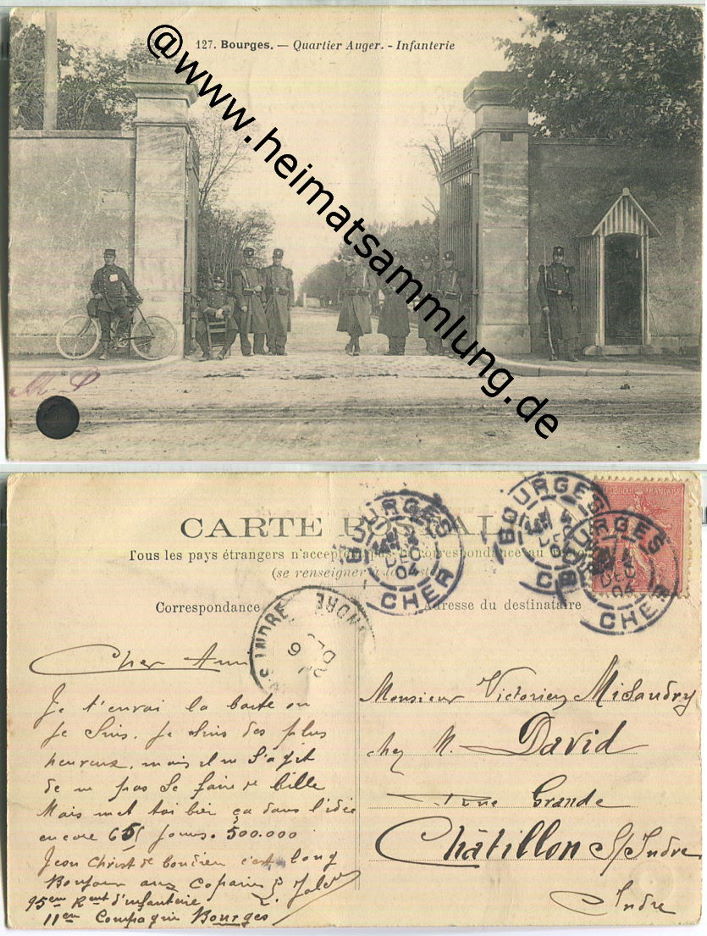 127. Bourges. — Quartier Auger. - Infanterie
@www.heimatsammlung.de
CARTE POSTALE
Tous les pays étrangers n'acceptent pas la correspondance au
(se renseigner à la Poste)
Correspondance
Adresse du destinataire
BOURGES
DEC
04
CHER
BOURGES
DEC
BOURGES
DEC
04
CHER
INDRE
Cher Ami
Je t'envoi la carte ou
je suis. je suis des plus
heureux, mais il ne s'agit
de ne pas se faire de bille
Mais met toi bien ça dans l'idée
encore 65 jours. 500.000
Jean Christ de c'est long
Bonjour aux Copains
95em Rent d'infanterie
11em Compagnie Bourges
Monsieur Victorien Misandry
chez M. David
Rue Grande
Châtillon S/Indre
Indre